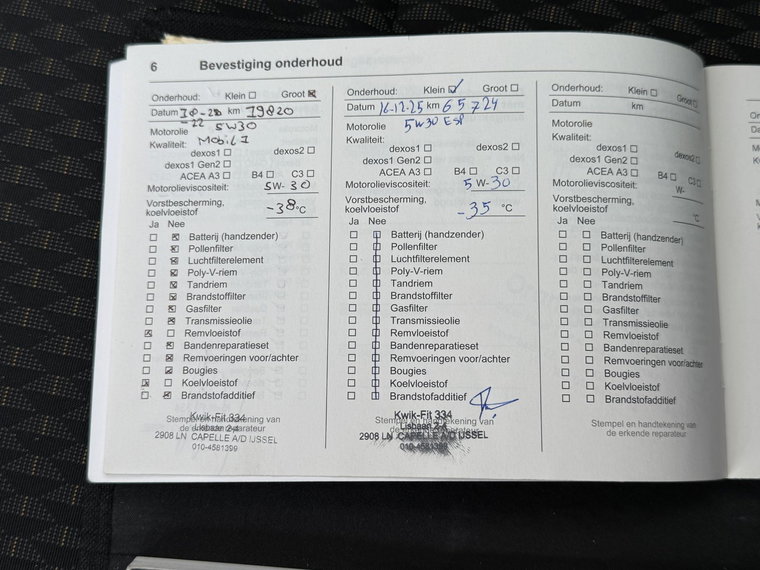 6 Bevestiging onderhoud
Onderhoud: Klein ☐ Groot ☒
Datum 18-20 km 19820
-22
Motorolie 5W30
Kwaliteit: Mobil 1
dexos1 ☐ dexos2 ☐
dexos1 Gen2 ☐
ACEA A3 ☐ B4 ☐ C3 ☐
Motorolieviscositeit: 5W-30
Vorstbescherming,
koelvloeistof -38°C
Ja Nee
☐ ☒ Batterij (handzender)
☐ ☒ Pollenfilter
☐ ☒ Luchtfilterelement
☐ ☒ Poly-V-riem
☐ ☒ Tandriem
☐ ☒ Brandstoffilter
☐ ☒ Gasfilter
☐ ☒ Transmissieolie
☒ ☐ Remvloeistof
☐ ☒ Bandenreparatieset
☐ ☒ Remvoeringen voor/achter
☐ ☒ Bougies
☒ ☐ Koelvloeistof
☐ ☒ Brandstofadditief
Kwik-Fit 334
Stempel en handtekening van
Lisbaan 2-4
de erkende reparateur
2908 LN CAPELLE A/D IJSSEL
010-4581399
Onderhoud: Klein ☑ Groot ☐
Datum 16-12-25 km 65724
Motorolie 5W30 ESP
Kwaliteit:
dexos1 ☐ dexos2 ☐
dexos1 Gen2 ☐
ACEA A3 ☐ B4 ☐ C3 ☐
Motorolieviscositeit: 5W-30
Vorstbescherming,
koelvloeistof -35 °C
Ja Nee
☐ ☐ Batterij (handzender)
☐ ☐ Pollenfilter
☐ ☐ Luchtfilterelement
☐ ☐ Poly-V-riem
☐ ☐ Tandriem
☐ ☐ Brandstoffilter
☐ ☐ Gasfilter
☐ ☐ Transmissieolie
☐ ☐ Remvloeistof
☐ ☐ Bandenreparatieset
☐ ☐ Remvoeringen voor/achter
☐ ☐ Bougies
☐ ☐ Koelvloeistof
☐ ☐ Brandstofadditief
Kwik-Fit 334
Stempel en handtekening van
Lisbaan 2-4
de erkende reparateur
2908 LN CAPELLE A/D IJSSEL
010-4581399
Onderhoud: Klein ☐ Groot ☐
Datum km
Motorolie
Kwaliteit:
dexos1 ☐ dexos2 ☐
dexos1 Gen2 ☐
ACEA A3 ☐ B4 ☐ C3 ☐
Motorolieviscositeit: W-
Vorstbescherming,
koelvloeistof °C
Ja Nee
☐ ☐ Batterij (handzender)
☐ ☐ Pollenfilter
☐ ☐ Luchtfilterelement
☐ ☐ Poly-V-riem
☐ ☐ Tandriem
☐ ☐ Brandstoffilter
☐ ☐ Gasfilter
☐ ☐ Transmissieolie
☐ ☐ Remvloeistof
☐ ☐ Bandenreparatieset
☐ ☐ Remvoeringen voor/achter
☐ ☐ Bougies
☐ ☐ Koelvloeistof
☐ ☐ Brandstofadditief
Stempel en handtekening van
de erkende reparateur